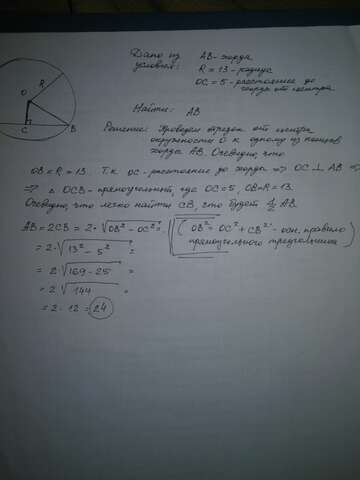 Дано из
условия:
AB - хорда
R = 13 - радиус
OC = 5 - расстояние до
хорды от центра
Найти: AB
Решение: Проведем отрезок от центра
окружности O к одному из концов
хорды AB. Очевидно, что
OB = R = 13. Т.к. OC - расстояние до хорды => OC ⊥ AB =>
=> △ OCB - прямоугольный, где OC = 5, OB = R = 13.
Очевидно, что легко найти CB, это будет 1/2 AB.
AB = 2CB = 2·√(OB² - OC²) =
(OB² = OC² + CB² - осн. правило
прямоугольного треугольника)
= 2·√(13² - 5²) =
= 2·√(169 - 25) =
= 2√144 =
= 2·12 = 24
R
O
C
B